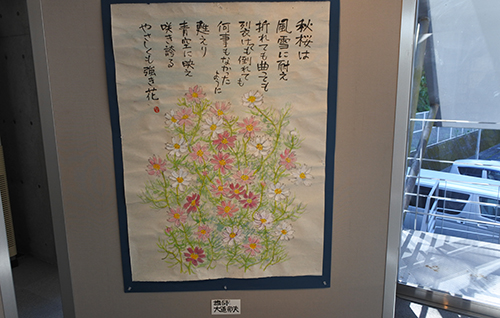 秋桜は
風雪に耐え
折れても曲っても
裂けても倒れても
何事もなかった
ように
甦えり
青空に映え
咲き誇る
やさしくも強き花